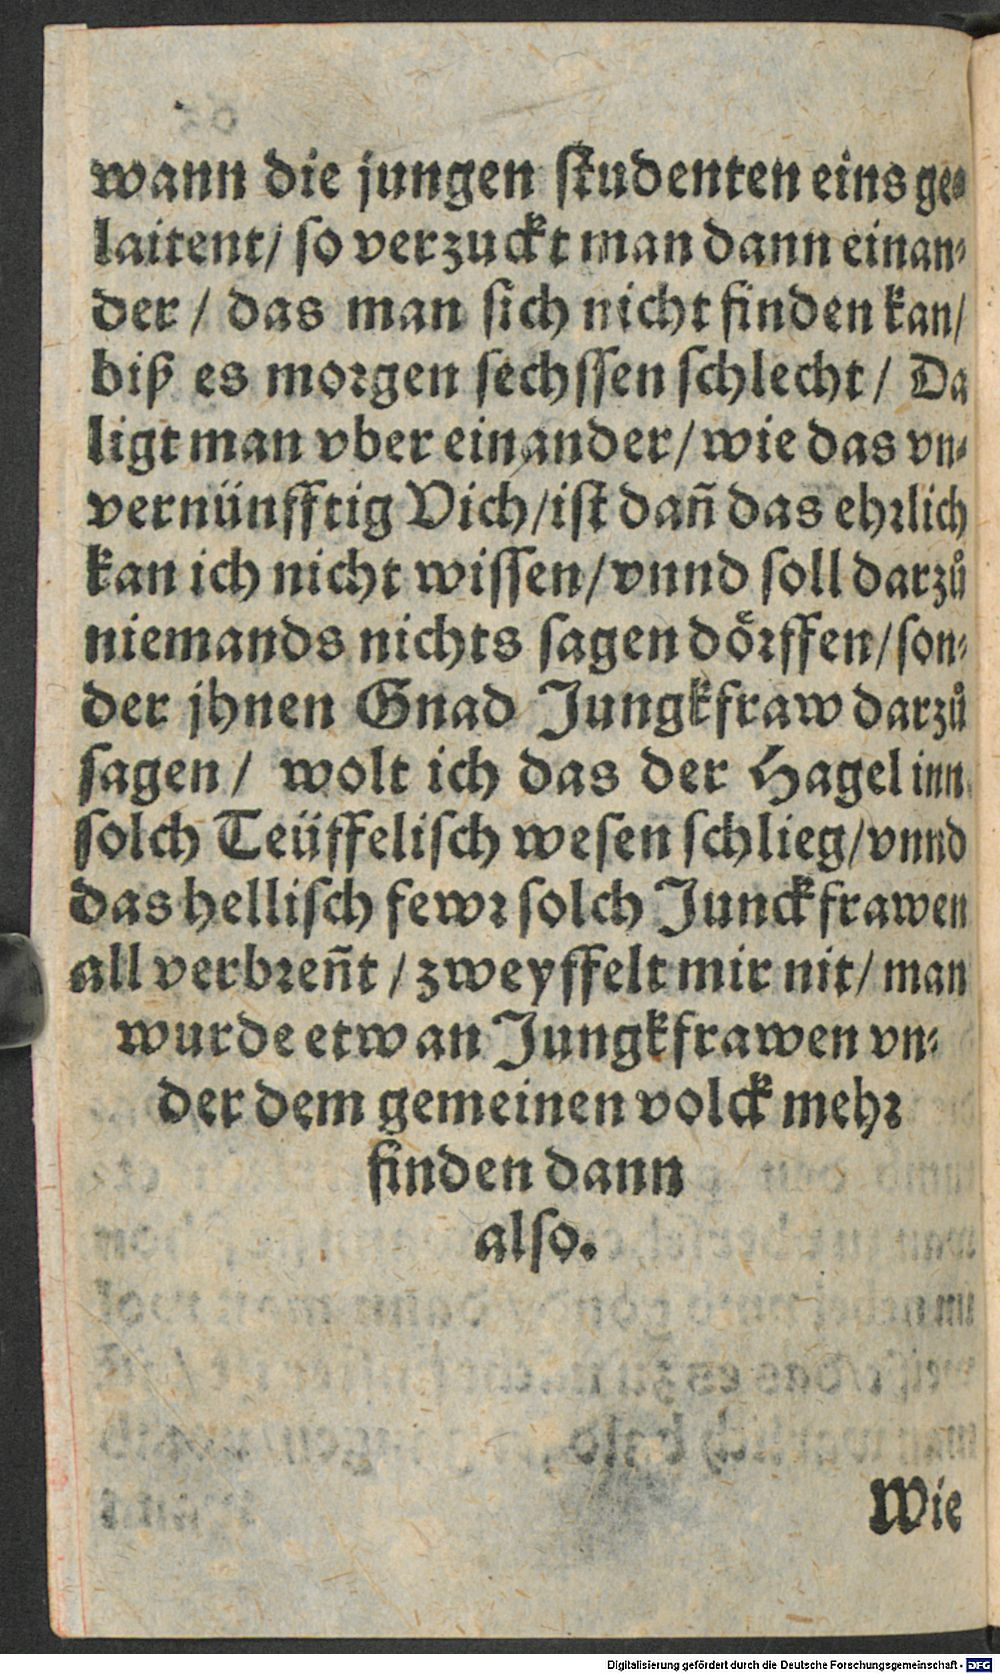 wann die jungen ſtudenten eins ge⸗
laitent/ ſo verzuckt man dann einan⸗
der / das man ſich nicht finden kan/
biß es morgen ſechſſen ſchlecht / Da
ligt man vber einander/ wie das vn⸗
vernünfftig Vich/iſt dañ das ehꝛlich
kan ich nicht wiſſen/vnnd ſoll darzů
niemands nichts ſagen dörffen/ſon⸗
der jhnen Gnad Jungkfraw darzů
ſagen / wolt ich das der Hagel inn
ſolch Teüffeliſch weſen ſchlieg/vnnd
das helliſch fewꝛ ſolch Junckfrawen
all verbꝛeñt / zweyffelt mir nit/ man
wurde etwan Jungkfrawen vn⸗
der dem gemeinen volck mehꝛ
finden dann
alſo.
Wie
Digitalisierung gefördert durch die Deutsche Forschungsgemeinschaft - DFG